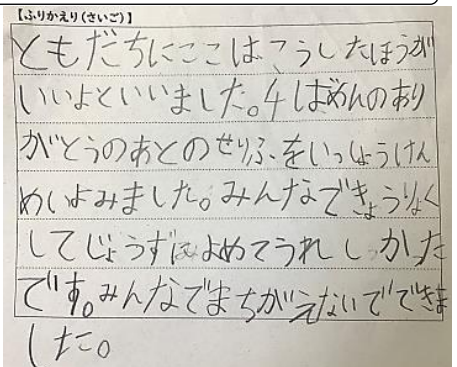 【ふりかえり（さいご）】
ともだちにここはこうしたほうが
いいよといいました。4ばめんのあり
がとうのあとのせりふをいっしょうけん
めいよみました。みんなできょうりょく
してじょうずによめてうれしかった
です。みんなでまちがえないでできま
した。